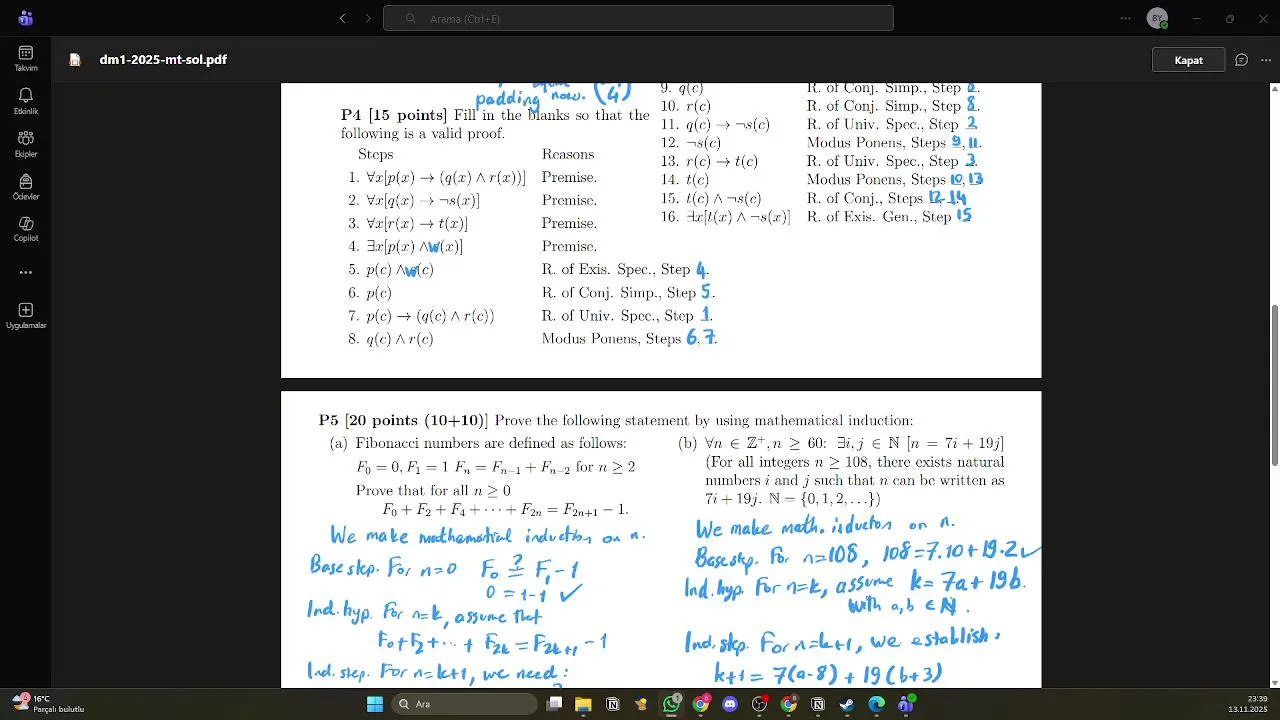 Arama (Ctrl+E)
BY
dm1-2025-mt-sol.pdf
Kapat
Takvim
Etkinlik
Ekipler
Ödevler
Copilot
Uygulamalar
padding now. (4)
P4 [15 points] Fill in the blanks so that the
following is a valid proof.
Steps Reasons
1. ∀x[p(x) → (q(x) ∧ r(x))] Premise.
2. ∀x[q(x) → ¬s(x)] Premise.
3. ∀x[r(x) → t(x)] Premise.
4. ∃x[p(x) ∧w(x)] Premise.
5. p(c) ∧w(c) R. of Exis. Spec., Step 4.
6. p(c) R. of Conj. Simp., Step 5.
7. p(c) → (q(c) ∧ r(c)) R. of Univ. Spec., Step 1.
8. q(c) ∧ r(c) Modus Ponens, Steps 6, 7.
9. q(c) R. of Conj. Simp., Step 8.
10. r(c) R. of Conj. Simp., Step 8.
11. q(c) → ¬s(c) R. of Univ. Spec., Step 2
12. ¬s(c) Modus Ponens, Steps 9, 11.
13. r(c) → t(c) R. of Univ. Spec., Step 3.
14. t(c) Modus Ponens, Steps 10, 13
15. t(c) ∧ ¬s(c) R. of Conj., Steps 12, 14
16. ∃x[t(x) ∧ ¬s(x)] R. of Exis. Gen., Step 15
P5 [20 points (10+10)] Prove the following statement by using mathematical induction:
(a) Fibonacci numbers are defined as follows:
F₀ = 0, F₁ = 1 Fₙ = Fₙ₋₁ + Fₙ₋₂ for n ≥ 2
Prove that for all n ≥ 0
F₀ + F₂ + F₄ + ··· + F₂ₙ = F₂ₙ₊₁ − 1.
We make mathematical induction on n.
Base step. For n=0 F₀ ≟ F₁ - 1
0 = 1-1 ✓
Ind. hyp. For n=k, assume that
F₀+F₂+··· + F₂ₖ = F₂ₖ₊₁ - 1
Ind. step. For n=k+1, we need:
(b) ∀n ∈ Z⁺, n ≥ 60: ∃i, j ∈ N [n = 7i + 19j]
(For all integers n ≥ 108, there exists natural
numbers i and j such that n can be written as
7i + 19j. N = {0, 1, 2, . . .})
We make math. inducton on n.
Base step. For n=108, 108=7.10+19.2 ✓
Ind. hyp. For n=k, assume k= 7a+19b.
with a,b ∈ N.
Ind. step. For n=k+1, we establish.
k+1 = 7(a-8) + 19(b+3)
16°C
Parçalı bulutlu
Ara
23:39
13.11.2025